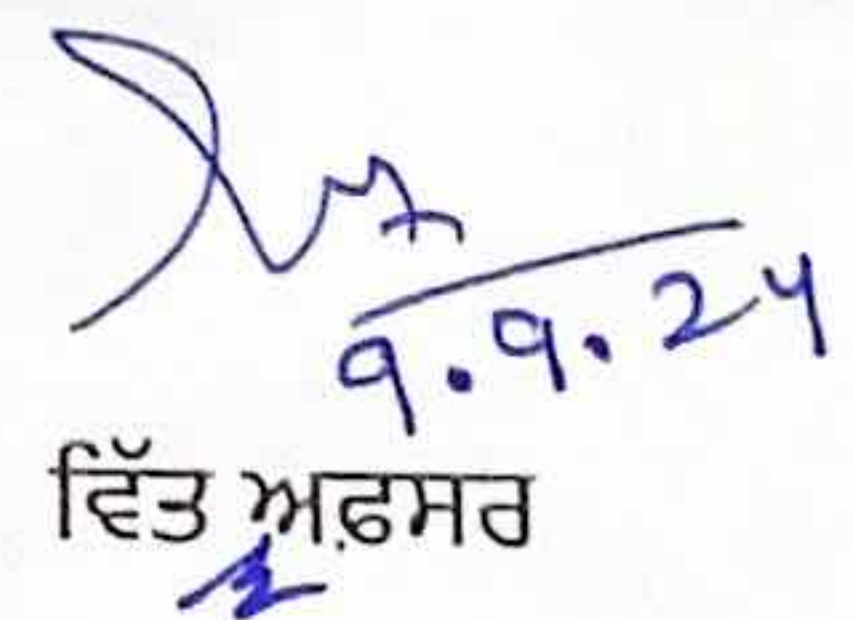 9.9.24
ਵਿੱਤ ਅਫ਼ਸਰ